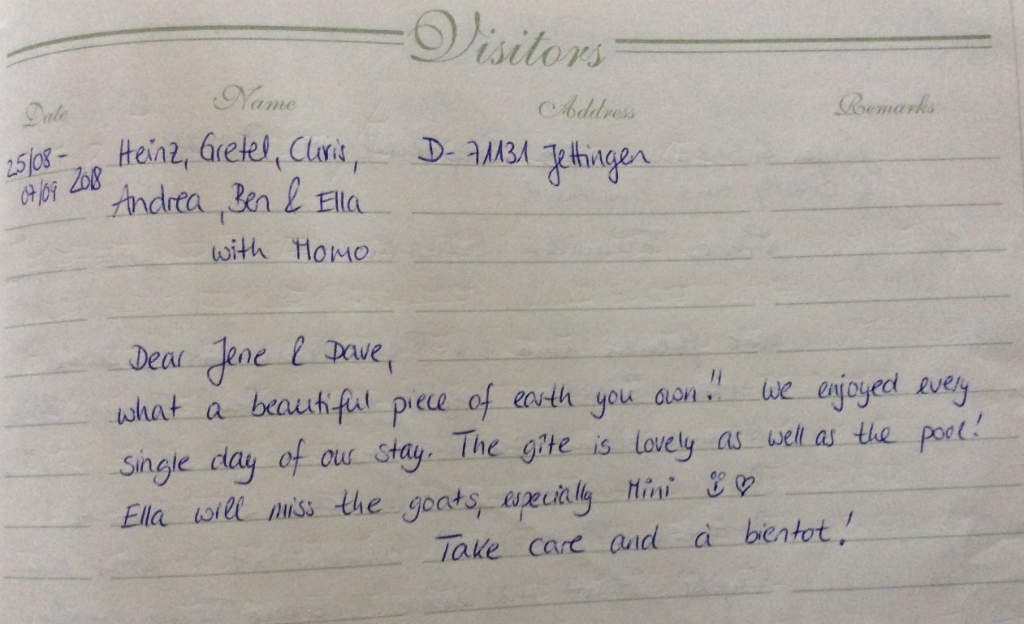 Visitors
Date Name Address Remarks
25/08 - Heinz, Gretel, Chris, D- 71131 Jettingen
07/09 2018 Andrea, Ben & Ella
with Momo
Dear Jene & Dave,
what a beautiful piece of earth you own!! We enjoyed every
single day of our stay. The gîte is lovely as well as the pool!
Ella will miss the goats, especially Mini ☺♡
Take care and à bientot!